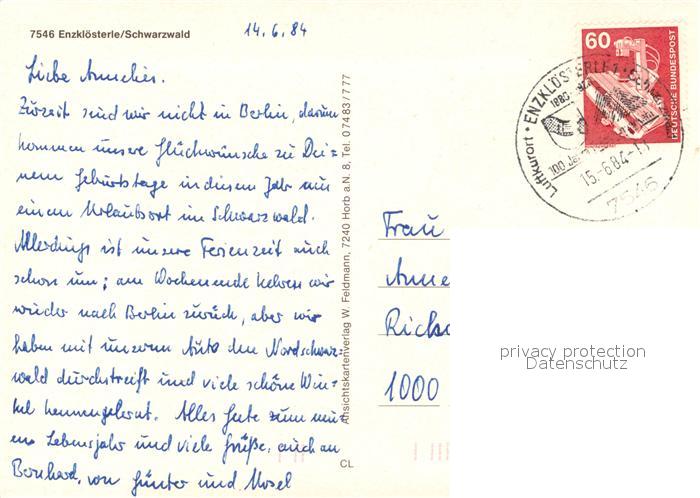 7546 Enzklösterle/Schwarzwald
14.6.84
Liebe Annelies.
Zurzeit sind wir nicht in Berlin, darum
kommen unsere Glückwünsche zu Dei-
nem Geburtstage in diesem Jahr aus
einem Urlaubsort im Schwarzwald.
Allerdings ist unsere Ferienzeit auch
schon um; am Wochenende kehren wir
wieder nach Berlin zurück, aber wir
haben mit unserm Auto den Nordschwarz-
wald durchstreift und viele schöne Win-
kel kennengelernt. Alles Gute zum neu-
en Lebensjahr und viele Grüße, auch an
Bernhard, von Günter und
CL
Ansichtskartenverlag W. Feldmann, 7240 Horb a.N. 8, Tel. 07483/777
60
DEUTSCHE BUNDESPOST
Luftkurort · ENZKLÖSTERLE
15.-6.84-11
7546
Frau
Anne
Richa
1000
privacy protection
Datenschutz